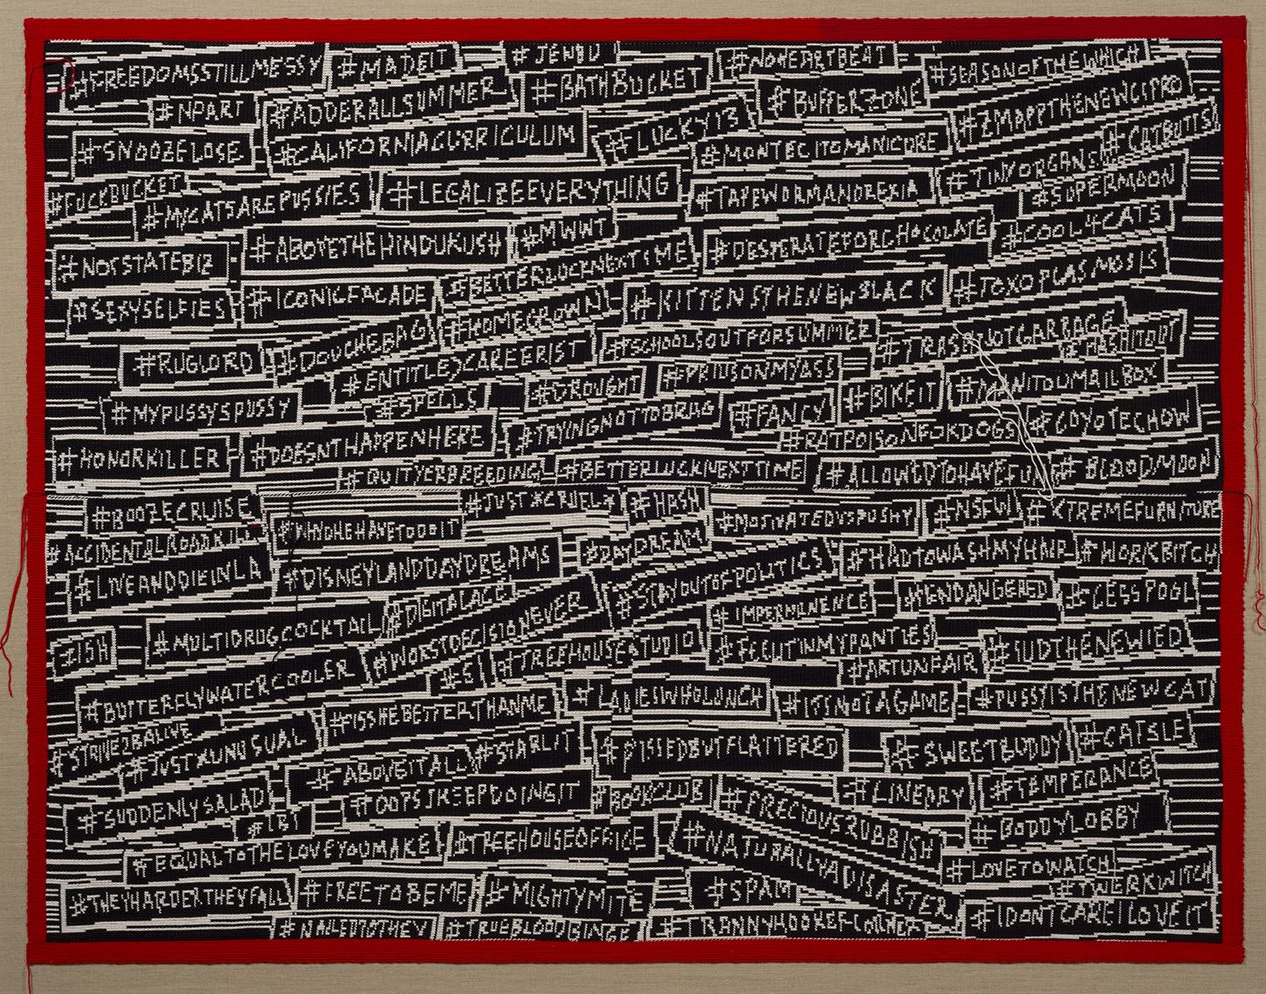 #FREEDOMSSTILLMESSY #MADEIT #NOHEARTBEAT #SEASONOFTHEWHICH
#NPART #ADDERALLSUMMER #BATHBUCKET #BUFFERZONE #ZMAPPTHENEWCIPRO
#SNOOZELOSE #CALIFORNIACURRICULUM #LUCKY13 #MONTECITOMANICURE #TINYORGANS #CATBUTTS
#FUCKBUCKET #MYCATSAREPUSSIES #LEGALIZEEVERYTHING #TAPEWORMANOREXIA #SUPERMOON
#NOTSTATEBIZ #ABOVETHEHINDUKUSH #MWWT #DESPERATEFORCHOCOLATE #COOL4CATS
#SEXYSELFIES #ICONICFACADE #BETTERLUCKNEXTTIME #KITTENSTHENEWBLACK #TOXOPLASMOSIS
#RUGLORD #DOUCHEBAG #HOMEGROWN #SCHOOLSOUTFORSUMMER
#ENTITLEDCAREERIST #DROUGHT #PRIUSONMYASS #BIKFIT
#MYPUSSYSPUSSY #SPELLS #TRYINGNOTTOBRAG #FANCY #RATPOISONFORDOGS #COYOTECHOW
#HONORKILLER #DOESNTHAPPENHERE #QUITYERBREEDING #BETTERLUCKNEXTTIME #BLOODMOON
#BOOZECRUISE #WHYDHEHAVETODOIT #HASH #MOTIVATEDVSPUSHY #NSFW #XTREMEFURNITURE
#ACCIDENTALROADKILL #DAYDREAM #HADTOWASHMYHAIR #WORKBITCH
#LIVEANDDIEINLA #DISNEYLANDDAYDREAMS #STAYOUTOFPOLITICS #ENDANGERED #CESSPOOL
#ISH #MULTIDRUGCOCKTAIL #DIGITALAGE #WORSTDECISIONEVER #IMPERMANENCE
#TREEHOUSESTUDIO #FECUTINMYPANTIES #ARTUNFAIR #SUDTHENEWIED
#BUTTERFLYWATERCOOLER #51 #LADIESWHOLUNCH #ITSNOTAGAME #PUSSYISTHENEWCAT
#STRIVE2BALIVE #JUSTXUNUSUAL #ISSHEBETTERTHANME #STARLIT #PISSEDBUTFLATTERED #SWEETBUDDY #CATSLE
#ABOVEITALL #TEMPERANCE
#SUDDENLYSALAD #OOPSIKEEPDOINGIT #BOOKCLUB #PRECIOUSRUBBISH #LINEDRY #BODDYLOBBY
#EQUALTOTHELOVEYOUMAKE #TREEHOUSEOFFICE #NATURALLYADISASTER #LOVETOWATCH #TWERKWITCH
#THEYHARDERTHEYFALL #FREETOBEME #MIGHTYMITE #SPAM #IDONTCAREILOVEIT
#NAILEDTOTHEV #TRUEBLOODGINGE